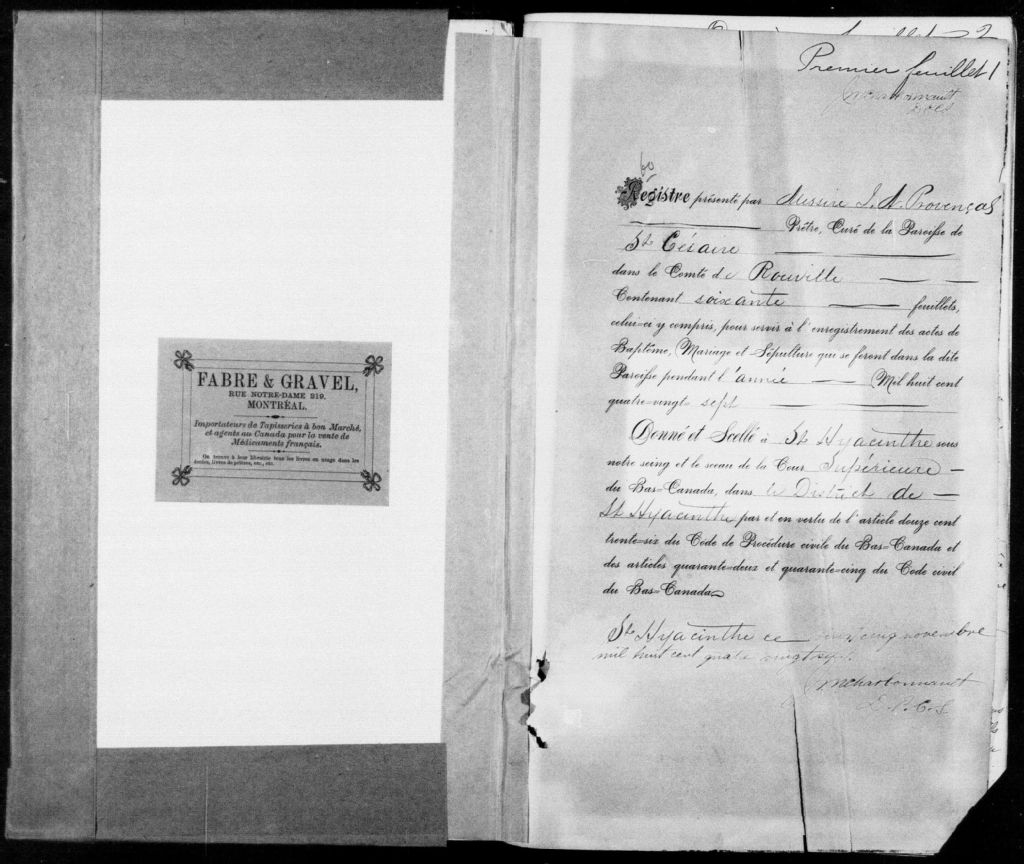 FABRE & GRAVEL,
RUE NOTRE-DAME 219,
MONTRÉAL.
Importateurs de Tapisseries à bon Marché,
et agents au Canada pour la vente de
Médicaments français.
On trouve à leur librairie tous les livres en usage dans les
écoles, livres de prières, etc., etc.
Premier feuillet 1
Registre présenté par Messire J. A. Provençal
Prêtre, Curé de la Paroisse de
St Césaire
dans le Comté de Rouville
Contenant soixante feuillets,
celui-ci y compris, pour servir à l'enregistrement des actes de
Baptême, Mariage et Sépulture qui se feront dans la dite
Paroisse pendant l'année Mil huit cent
quatre-vingt sept
Donné et Scellé à St Hyacinthe sous
notre seing et le sceau de la Cour Supérieure
du Bas-Canada, dans le District de
St Hyacinthe par et en vertu de l'article douze cent
trente-six du Code de Procédure civile du Bas-Canada et
des articles quarante-deux et quarante-cinq du Code civil
du Bas-Canada
St Hyacinthe ce vingt cinq novembre
mil huit cent quatre vingt sept.